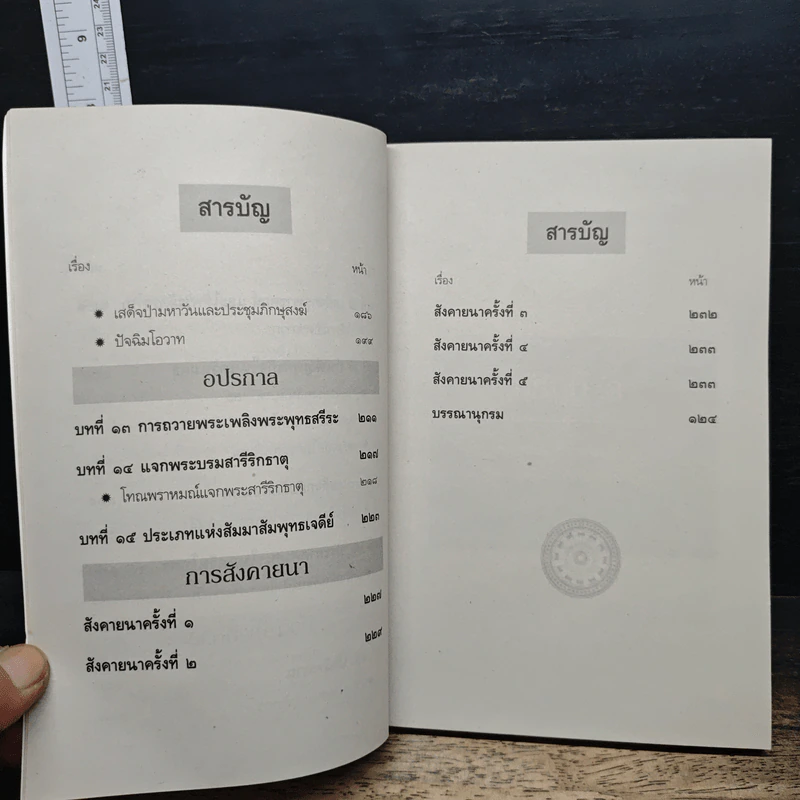 สารบัญ
เรื่อง หน้า
เสด็จป่ามหาวันและประชุมภิกษุสงฆ์ ๑๘๖
ปัจฉิมโอวาท ๑๙๔
อปรกาล
บทที่ ๑๓ การถวายพระเพลิงพระพุทธสรีระ ๒๑๑
บทที่ ๑๔ แจกพระบรมสารีริกธาตุ ๒๑๗
โทณพราหมณ์แจกพระสารีริกธาตุ ๒๑๘
บทที่ ๑๕ ประเภทแห่งสัมมาสัมพุทธเจดีย์ ๒๒๓
การสังคายนา
สังคายนาครั้งที่ ๑ ๒๒๗
สังคายนาครั้งที่ ๒ ๒๒๙
สารบัญ
เรื่อง หน้า
สังคายนาครั้งที่ ๓ ๒๓๒
สังคายนาครั้งที่ ๔ ๒๓๓
สังคายนาครั้งที่ ๕ ๒๓๓
บรรณานุกรม ๑๒๔